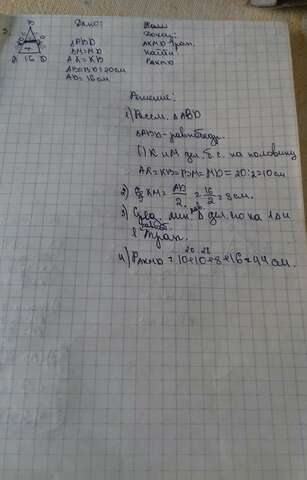 Дано:
Δ ABD
BM=MD
AK=KB
AB=BD=20см
AD=16см
A 16 D
AKMD трап.
Найти
PAKMD
Решение:
1) Рассм. Δ ABD
Δ ABD - равнобедр.
K и M дел. на половину
AK=KB=BM=MD=20:2=10см
2) KM= AD/2 = 16/2 = 8см.
3) Δ дел. его на 1 Δ и
1 трап.
20 28
4) PAKMD = 10+10+8+16=44 см.